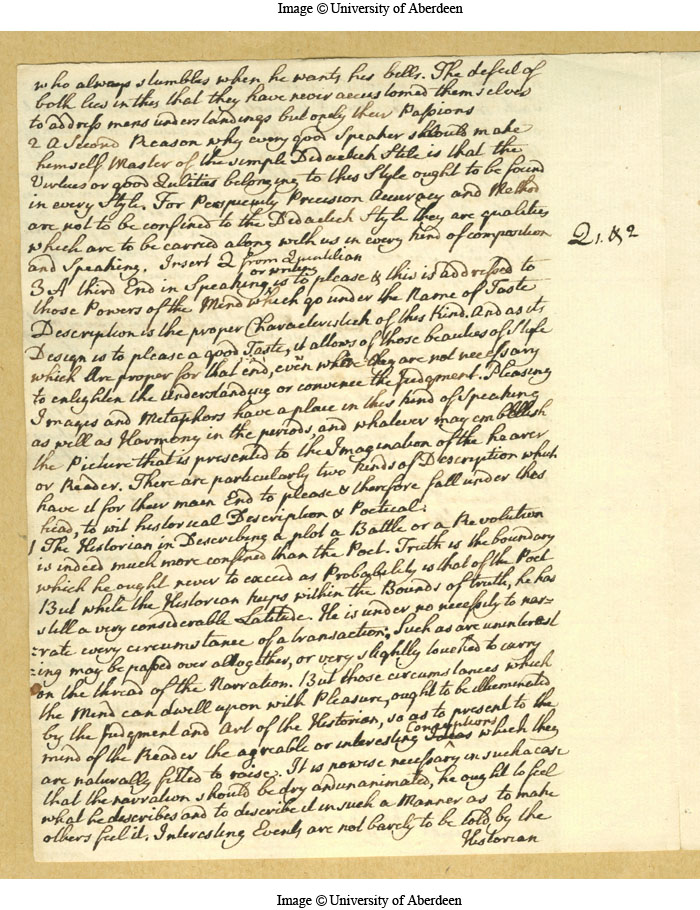 Image © University of Aberdeen
who always stumbles when he wants his bells. The defect of
both lies in this that they have never accustomed themselves
to address mens understandings but onely their Passions
2 A Second Reason why every good Speaker should make
himself Master of the simple Didactick Stile is that the
Virtues or good Qulities belonging to this Style ought to be found
in every Style. For Perspicuity Precision Accuracy and Method
are not to be confined to the Didactick Style they are qualities
which are to be carried along with us in every kind of composition
and Speaking. Insert 2 from Quintilian
Q 1. & 2
or writing
3 A third End in Speaking is to please & this is addressed to
those Powers of the Mind which go under the Name of Taste
Description is the proper Characteristick of this Kind. And as its
Design is to please a good Taste, it allows of those beauties of Stile
which are proper for that end, even when they are not necessary
to enlighten the Understanding or convince the Judgment. Pleasing
Images and Metaphors have a place in this kind of Speaking
as well as Harmony in the periods and whatever may embellish
the Picture that is presented to the Imagination of the hearer
or Reader. There are particularly two kinds of Description which
have it for their main End to please & therefore fall under this
head, to wit historical Description & Poetical.
1 The Historian in Describing a plot a Battle or a Revolution
is indeed much more confined than the Poet. Truth is the boundary
which he ought never to exceed as Probability is that of the Poet
But while the Historian keeps within the Bounds of truth, he has
still a very considerable Latitude. He is under no necessity to nar=
=rate every circumstance of a transaction; Such as are uninterest
=ing may be passed over altogether, or very slightly touched to carry
on the thread of the Narration. But those circumstances which
the Mind can dwell upon with Pleasure, ought to be illuminated
by the Judgment and Art of the Historian, so as to present to the
Conceptions
mind of the Reader the agreable or interesting which they
are naturally fitted to raise. It is nowise necessary in such a case
that the narration should be dry and unanimated, he ought to feel
what he describes and to describe it in such a Manner as to make
others feel it. Interesting Events are not barely to be told by the
Historian
Image © University of Aberdeen